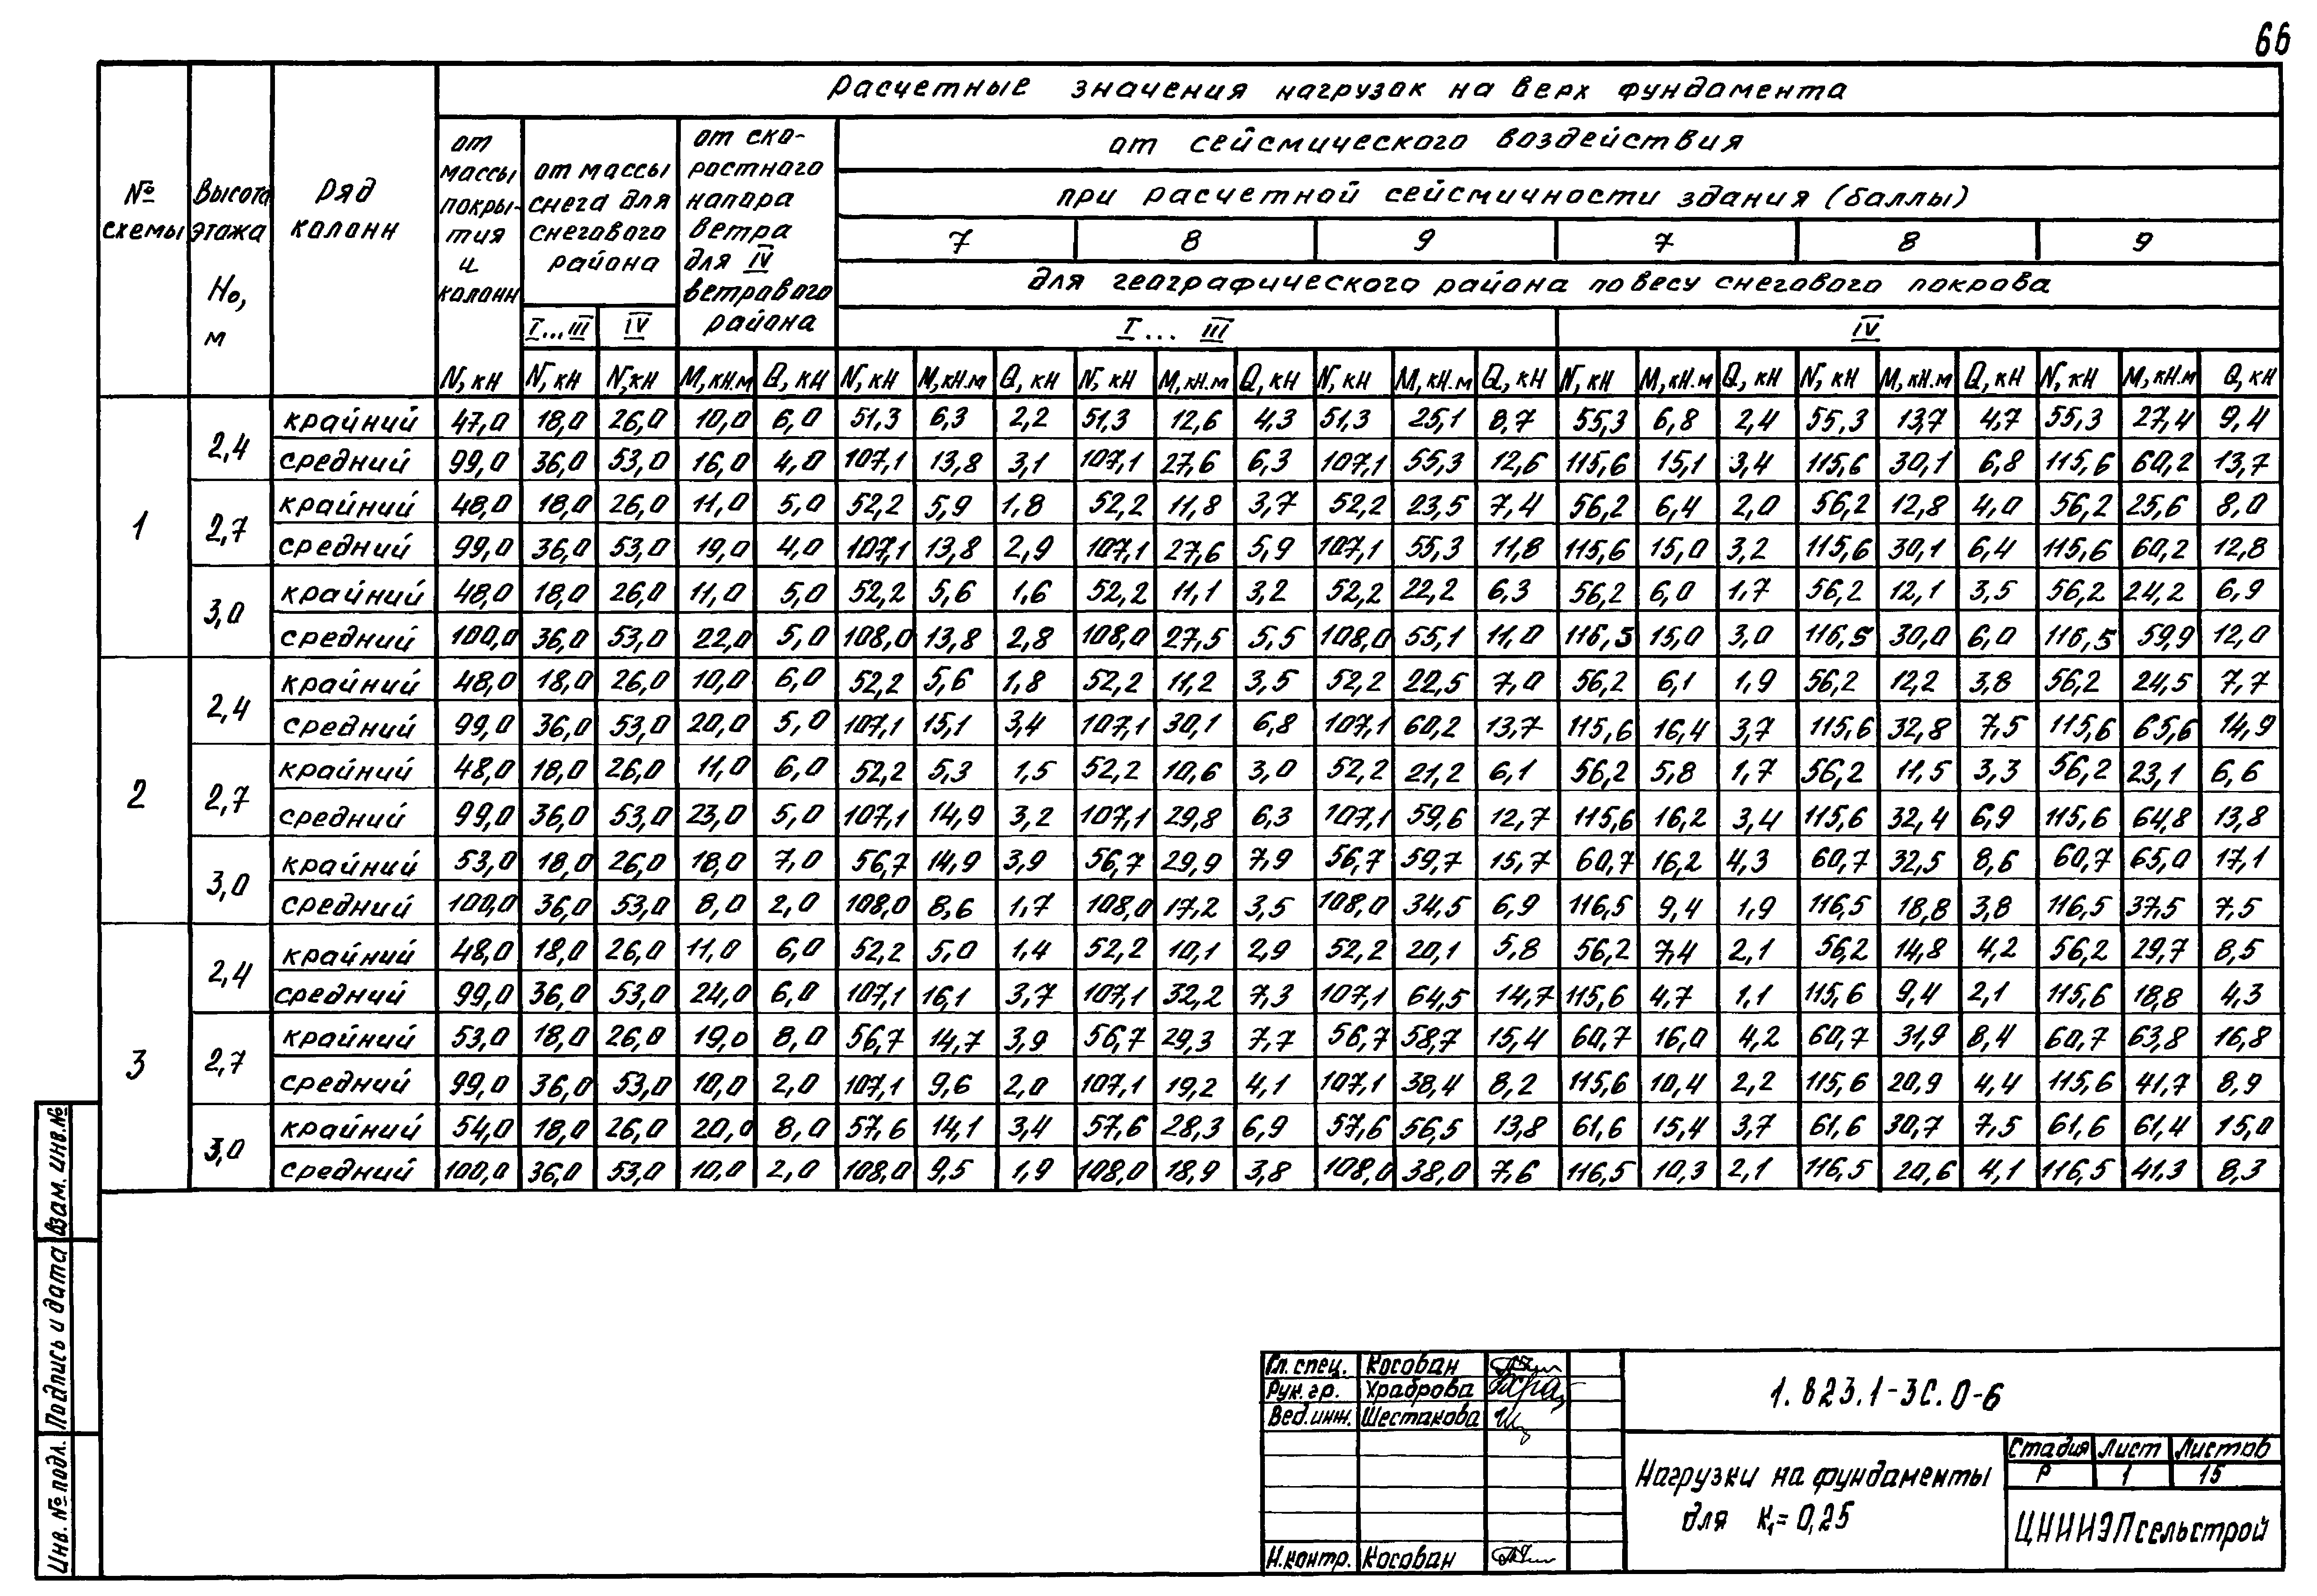 66
Расчетные значения нагрузок на верх фундамента
№ схемы
Высота этажа Н₀, м
Ряд колонн
от массы покры-тия и колонн
от массы снега для снегового района
от ско-ростного напора ветра для IV ветрового района
от сейсмического воздействия
при расчетной сейсмичности здания (баллы)
7 8 9 7 8 9
для географического района по весу снегового покрова
I...III IV I... III IV
N, кН N, кН N, кН М, кН.м Q, кН N, кН М, кН.м Q, кН N, кН М, кН.м Q, кН N, кН М, кН.м Q, кН N, кН М, кН.м Q, кН N, кН М, кН.м Q, кН N, кН М, кН.м Q, кН
1 2,4 крайний 47,0 18,0 26,0 10,0 6,0 51,3 6,3 2,2 51,3 12,6 4,3 51,3 25,1 8,7 55,3 6,8 2,4 55,3 13,7 4,7 55,3 27,4 9,4
средний 99,0 36,0 53,0 16,0 4,0 107,1 13,8 3,1 107,1 27,6 6,3 107,1 55,3 12,6 115,6 15,1 3,4 115,6 30,1 6,8 115,6 60,2 13,7
2,7 крайний 48,0 18,0 26,0 11,0 5,0 52,2 5,9 1,8 52,2 11,8 3,7 52,2 23,5 7,4 56,2 6,4 2,0 56,2 12,8 4,0 56,2 25,6 8,0
средний 99,0 36,0 53,0 19,0 4,0 107,1 13,8 2,9 107,1 27,6 5,9 107,1 55,3 11,8 115,6 15,0 3,2 115,6 30,1 6,4 115,6 60,2 12,8
3,0 крайний 48,0 18,0 26,0 11,0 5,0 52,2 5,6 1,6 52,2 11,1 3,2 52,2 22,2 6,3 56,2 6,0 1,7 56,2 12,1 3,5 56,2 24,2 6,9
средний 100,0 36,0 53,0 22,0 5,0 108,0 13,8 2,8 108,0 27,5 5,5 108,0 55,1 11,0 116,5 15,0 3,0 116,5 30,0 6,0 116,5 59,9 12,0
2 2,4 крайний 48,0 18,0 26,0 10,0 6,0 52,2 5,6 1,8 52,2 11,2 3,5 52,2 22,5 7,0 56,2 6,1 1,9 56,2 12,2 3,8 56,2 24,5 7,7
средний 99,0 36,0 53,0 20,0 5,0 107,1 15,1 3,4 107,1 30,1 6,8 107,1 60,2 13,7 115,6 16,4 3,7 115,6 32,8 7,5 115,6 65,6 14,9
2,7 крайний 48,0 18,0 26,0 11,0 6,0 52,2 5,3 1,5 52,2 10,6 3,0 52,2 21,2 6,1 56,2 5,8 1,7 56,2 11,5 3,3 56,2 23,1 6,6
средний 99,0 36,0 53,0 23,0 5,0 107,1 14,9 3,2 107,1 29,8 6,3 107,1 59,6 12,7 115,6 16,2 3,4 115,6 32,4 6,9 115,6 64,8 13,8
3,0 крайний 53,0 18,0 26,0 18,0 7,0 56,7 14,9 3,9 56,7 29,9 7,9 56,7 59,7 15,7 60,7 16,2 4,3 60,7 32,5 8,6 60,7 65,0 17,1
средний 100,0 36,0 53,0 8,0 2,0 108,0 8,6 1,7 108,0 17,2 3,5 108,0 34,5 6,9 116,5 9,4 1,9 116,5 18,8 3,8 116,5 37,5 7,5
3 2,4 крайний 48,0 18,0 26,0 11,0 6,0 52,2 5,0 1,4 52,2 10,1 2,9 52,2 20,1 5,8 56,2 7,4 2,1 56,2 14,8 4,2 56,2 29,7 8,5
средний 99,0 36,0 53,0 24,0 6,0 107,1 16,1 3,7 107,1 32,2 7,3 107,1 64,5 14,7 115,6 4,7 1,1 115,6 9,4 2,1 115,6 18,8 4,3
2,7 крайний 53,0 18,0 26,0 19,0 8,0 56,7 14,7 3,9 56,7 29,3 7,7 56,7 58,7 15,4 60,7 16,0 4,2 60,7 31,9 8,4 60,7 63,8 16,8
средний 99,0 36,0 53,0 10,0 2,0 107,1 9,6 2,0 107,1 19,2 4,1 107,1 38,4 8,2 115,6 10,4 2,2 115,6 20,9 4,4 115,6 41,7 8,9
3,0 крайний 54,0 18,0 26,0 20,0 8,0 57,6 14,1 3,4 57,6 28,3 6,9 57,6 56,5 13,8 61,6 15,4 3,7 61,6 30,7 7,5 61,6 61,4 15,0
средний 100,0 36,0 53,0 10,0 2,0 108,0 9,5 1,9 108,0 18,9 3,8 108,0 38,0 7,6 116,5 10,3 2,1 116,5 20,6 4,1 116,5 41,3 8,3
Взам. инв.№
Подпись и дата
Инв. № подл.
Гл. спец. Косован
Рук. гр. Храброва
Вед. инж. Шестакова
Н.контр. Косован
1.823.1-3С.0-6
Нагрузки на фундаменты
для К₁=0,25
Стадия Лист Листов
Р 1 15
ЦНИИЭПсельстрой